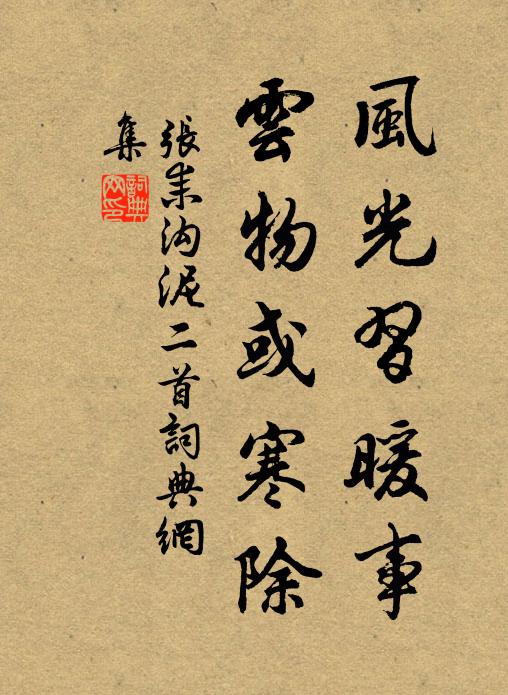 風光習暖事
雲物或寒除
張耒沟泥二首詞典網
集
詞典
网印